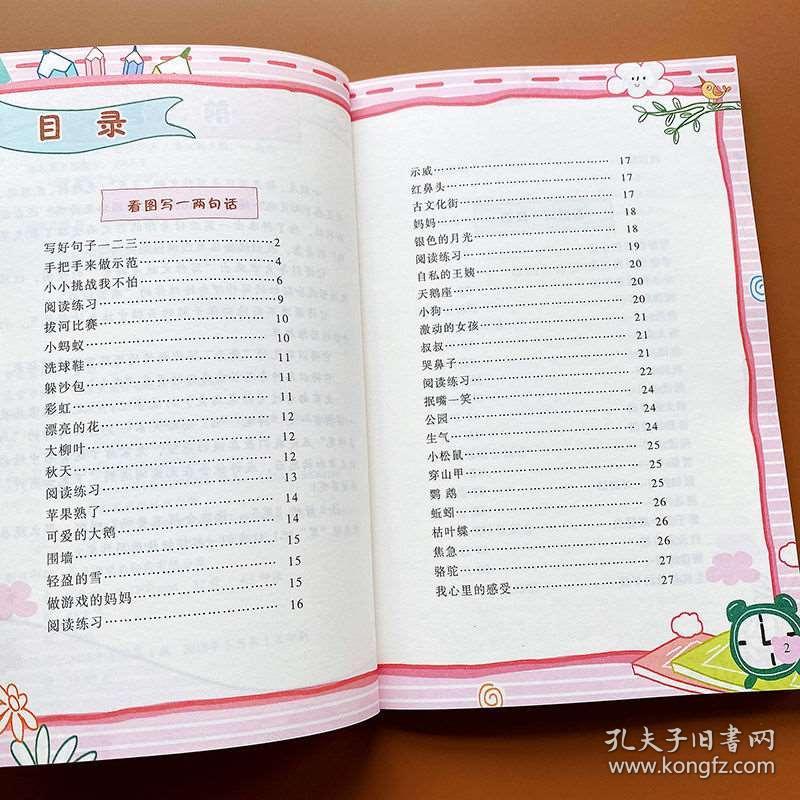 目 录
看图写一两句话
写好句子一二三……………………2
手把手来做示范……………………4
小小挑战我不怕……………………6
阅读练习……………………9
拔河比赛……………………10
小蚂蚁……………………10
洗球鞋……………………11
躲沙包……………………11
彩虹……………………11
漂亮的花……………………12
大柳叶……………………12
秋天……………………12
阅读练习……………………13
苹果熟了……………………14
可爱的大鹅……………………14
围墙……………………15
轻盈的雪……………………15
做游戏的妈妈……………………15
阅读练习……………………16
示威……………………17
红鼻头……………………17
古文化街……………………17
妈妈……………………18
银色的月光……………………18
阅读练习……………………19
自私的王姨……………………20
天鹅座……………………20
小狗……………………20
激动的女孩……………………21
叔叔……………………21
哭鼻子……………………21
阅读练习……………………22
抿嘴一笑……………………24
公园……………………24
生气……………………24
小松鼠……………………25
穿山甲……………………25
鹦鹉……………………25
蚯蚓……………………26
枯叶蝶……………………26
焦急……………………26
骆驼……………………27
我心里的感受……………………27
2
孔夫子旧书网
www.kongfz.com